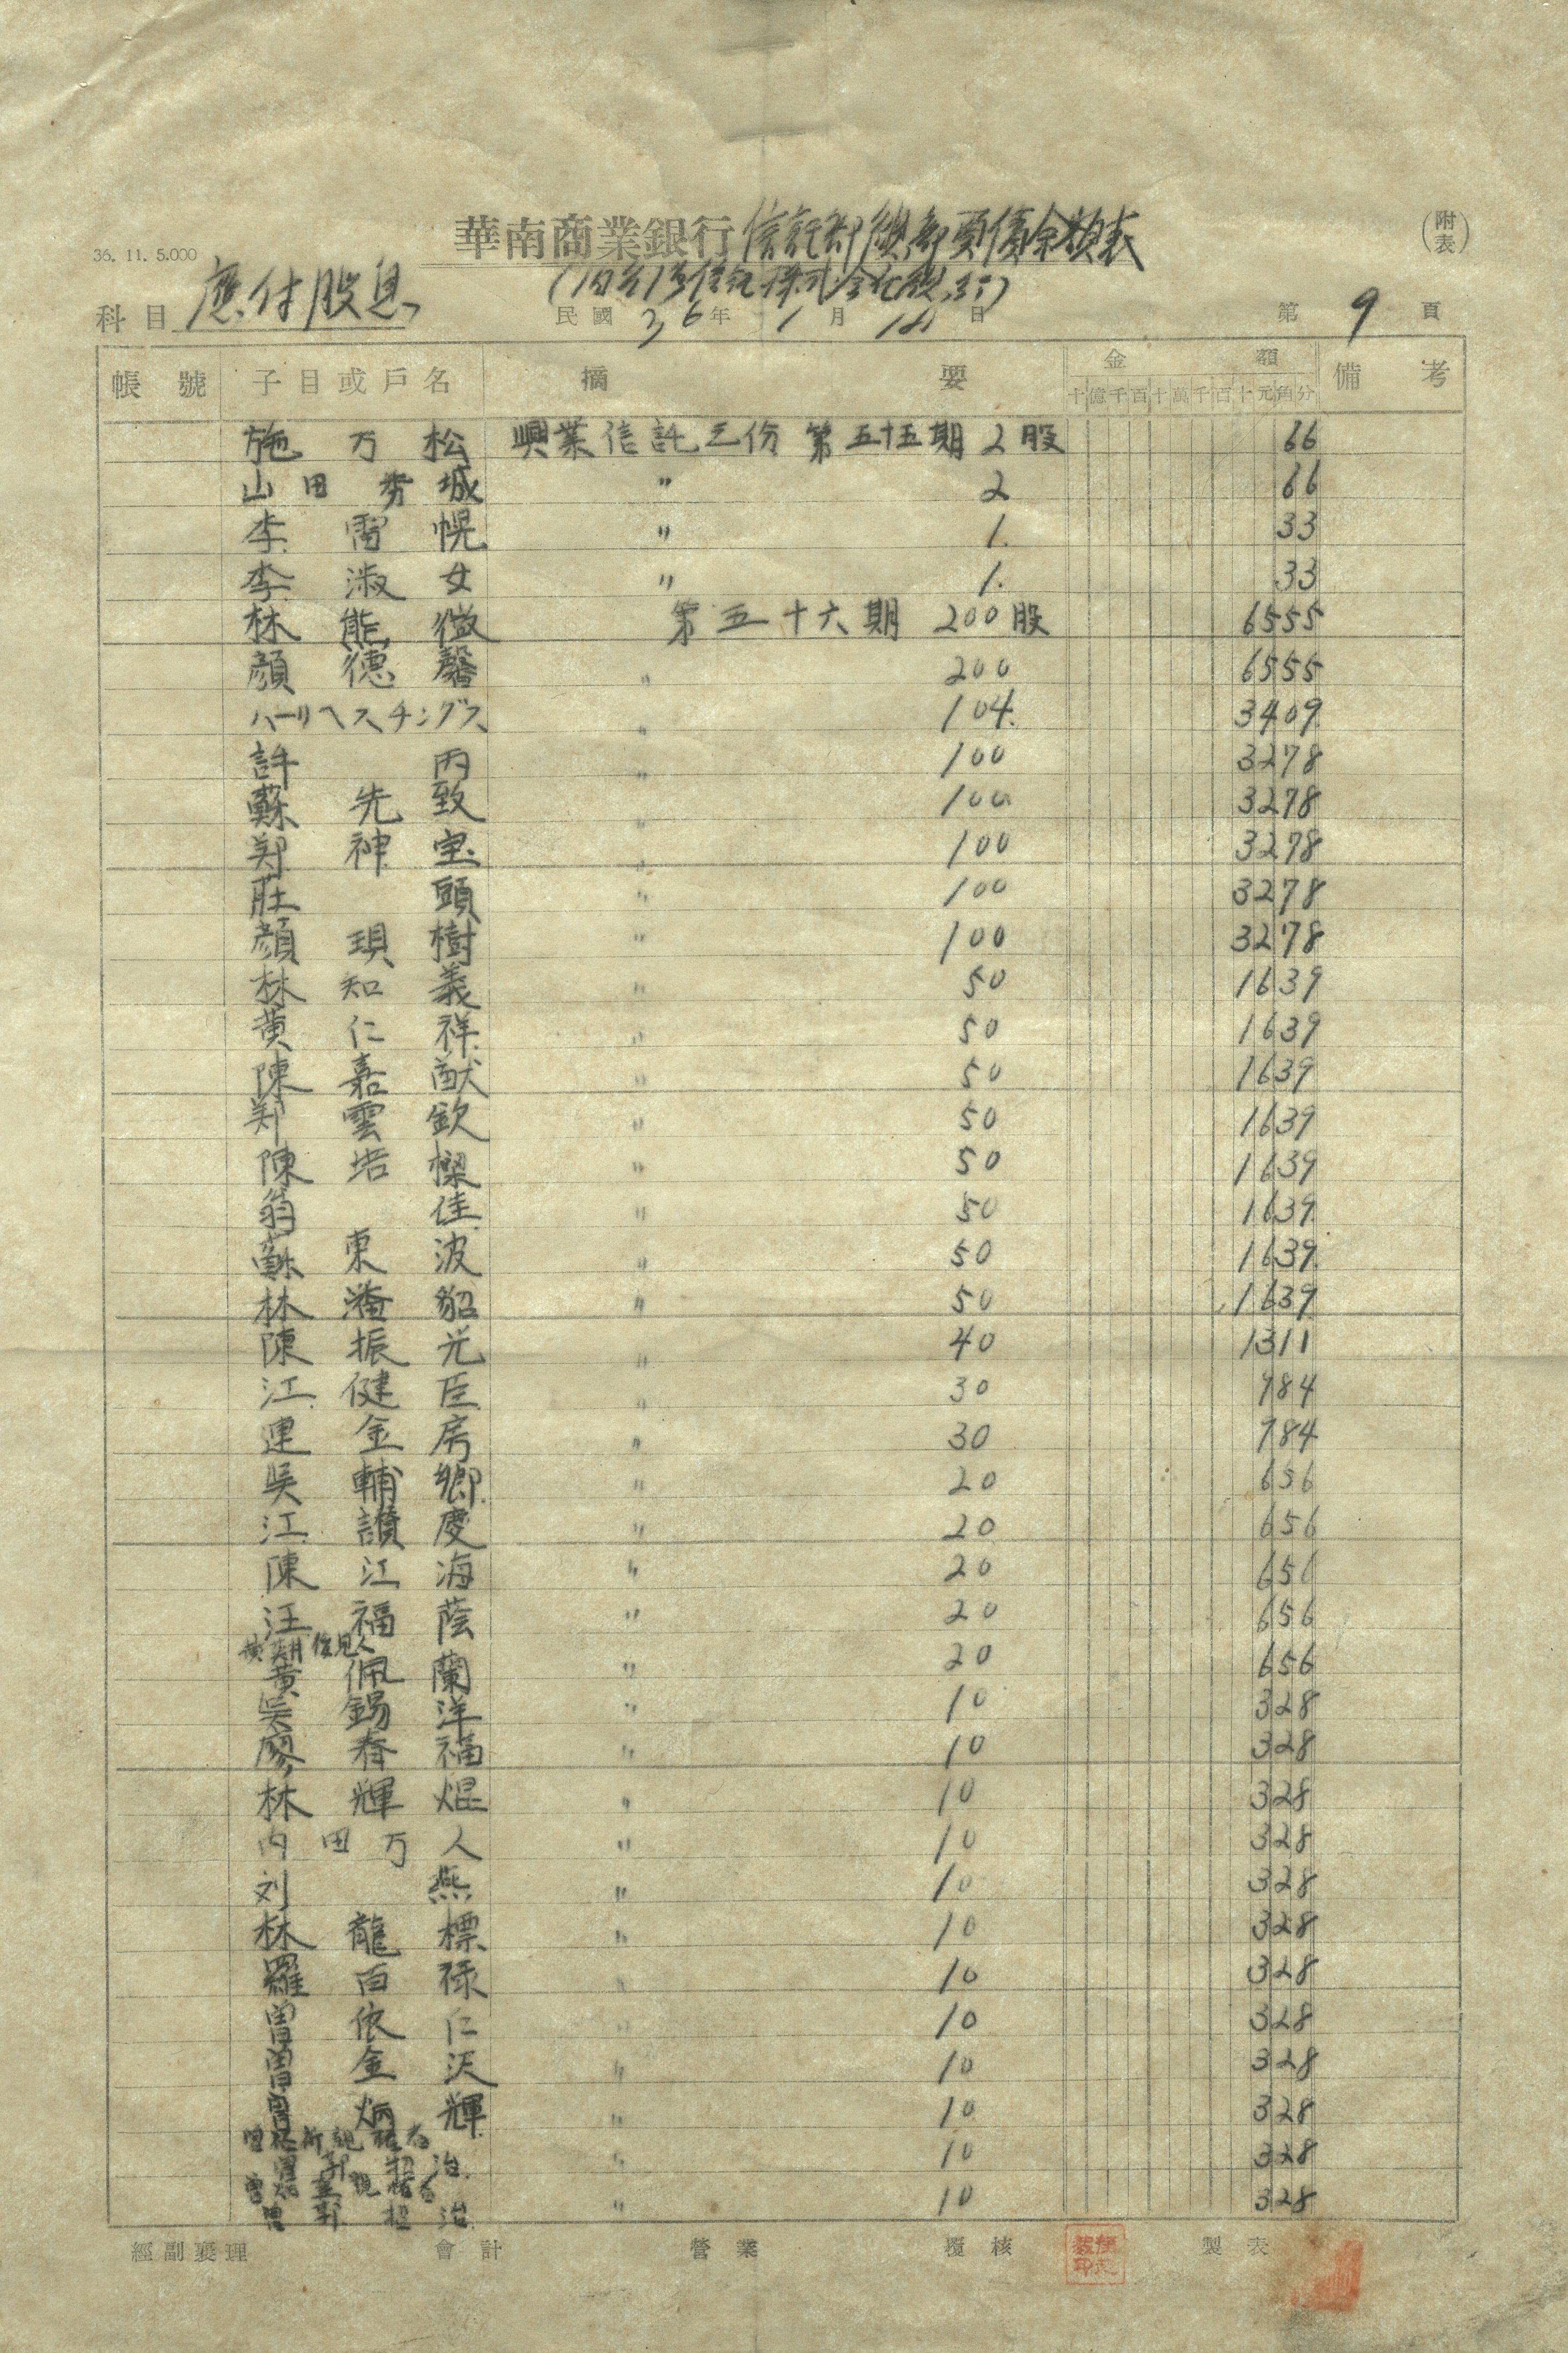 36. 11. 5.000
華南商業銀行信託部總部負債余額表
(附表)
科目 應付股息
民國36年1月 日
第9頁
帳號 子目或戶名 摘要 金額 備考
十億千百十萬千百十元角分
施万松 興業信託之份 第五十五期 2股 66
山田秀城 〃 2 66
李雷幌 〃 1. 33
李淑女 〃 1. 33
林熊徵 第五十六期 200股 6555
顔德馨 〃 200 6555
ハーリヘスチングス 〃 104. 3409
許丙 〃 100 3278
蘇先致 〃 100 3278
郑神宝 〃 100 3278
莊頭 〃 100 3278
顔瑱樹 〃 100 3278
林知義 〃 50 1639
黄仁祥 〃 50 1639
陳嘉猷 〃 50 1639
郑雲欽 〃 50 1639
陳塔樑 〃 50 1639
翁佳 〃 50 1639
蘇東波 〃 50 1639
林濬貂 〃 50 1639
陳振光 〃 40 1311
江健臣 〃 30 984
連金房 〃 30 984
吳輔卿 〃 20 656
江讚慶 〃 20 656
陳江海 〃 20 656
汪福蔭 〃 20 656
黄佩蘭 〃 20 656
吳錫洋 〃 10 328
廖春福 〃 10 328
林輝焜 〃 10 328
内田万人 〃 10 328
刘燕 〃 10 328
林龍標 〃 10 328
羅百禄 〃 10 328
曽依仁 〃 10 328
曽金沃 〃 10 328
曽炳輝 〃 10 328
〃 10 328
〃 10 328
經副襄理 會計 營業 覆核 製表